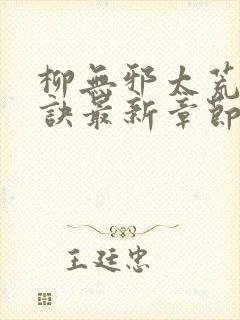 柳無邪太荒
訣最新章節
王廷忠